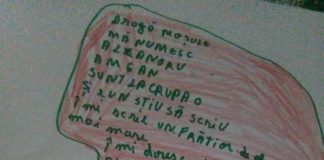 Dragă moșule
MĂ NUMESC
ALEXANDRU
AM 6 AN
SUNT LA GRUPA O
ȘI NU STIU SĂ SCRIU
ÎMI SCRIE UN FRĂȚIOR de al
meu mare
îmi dores